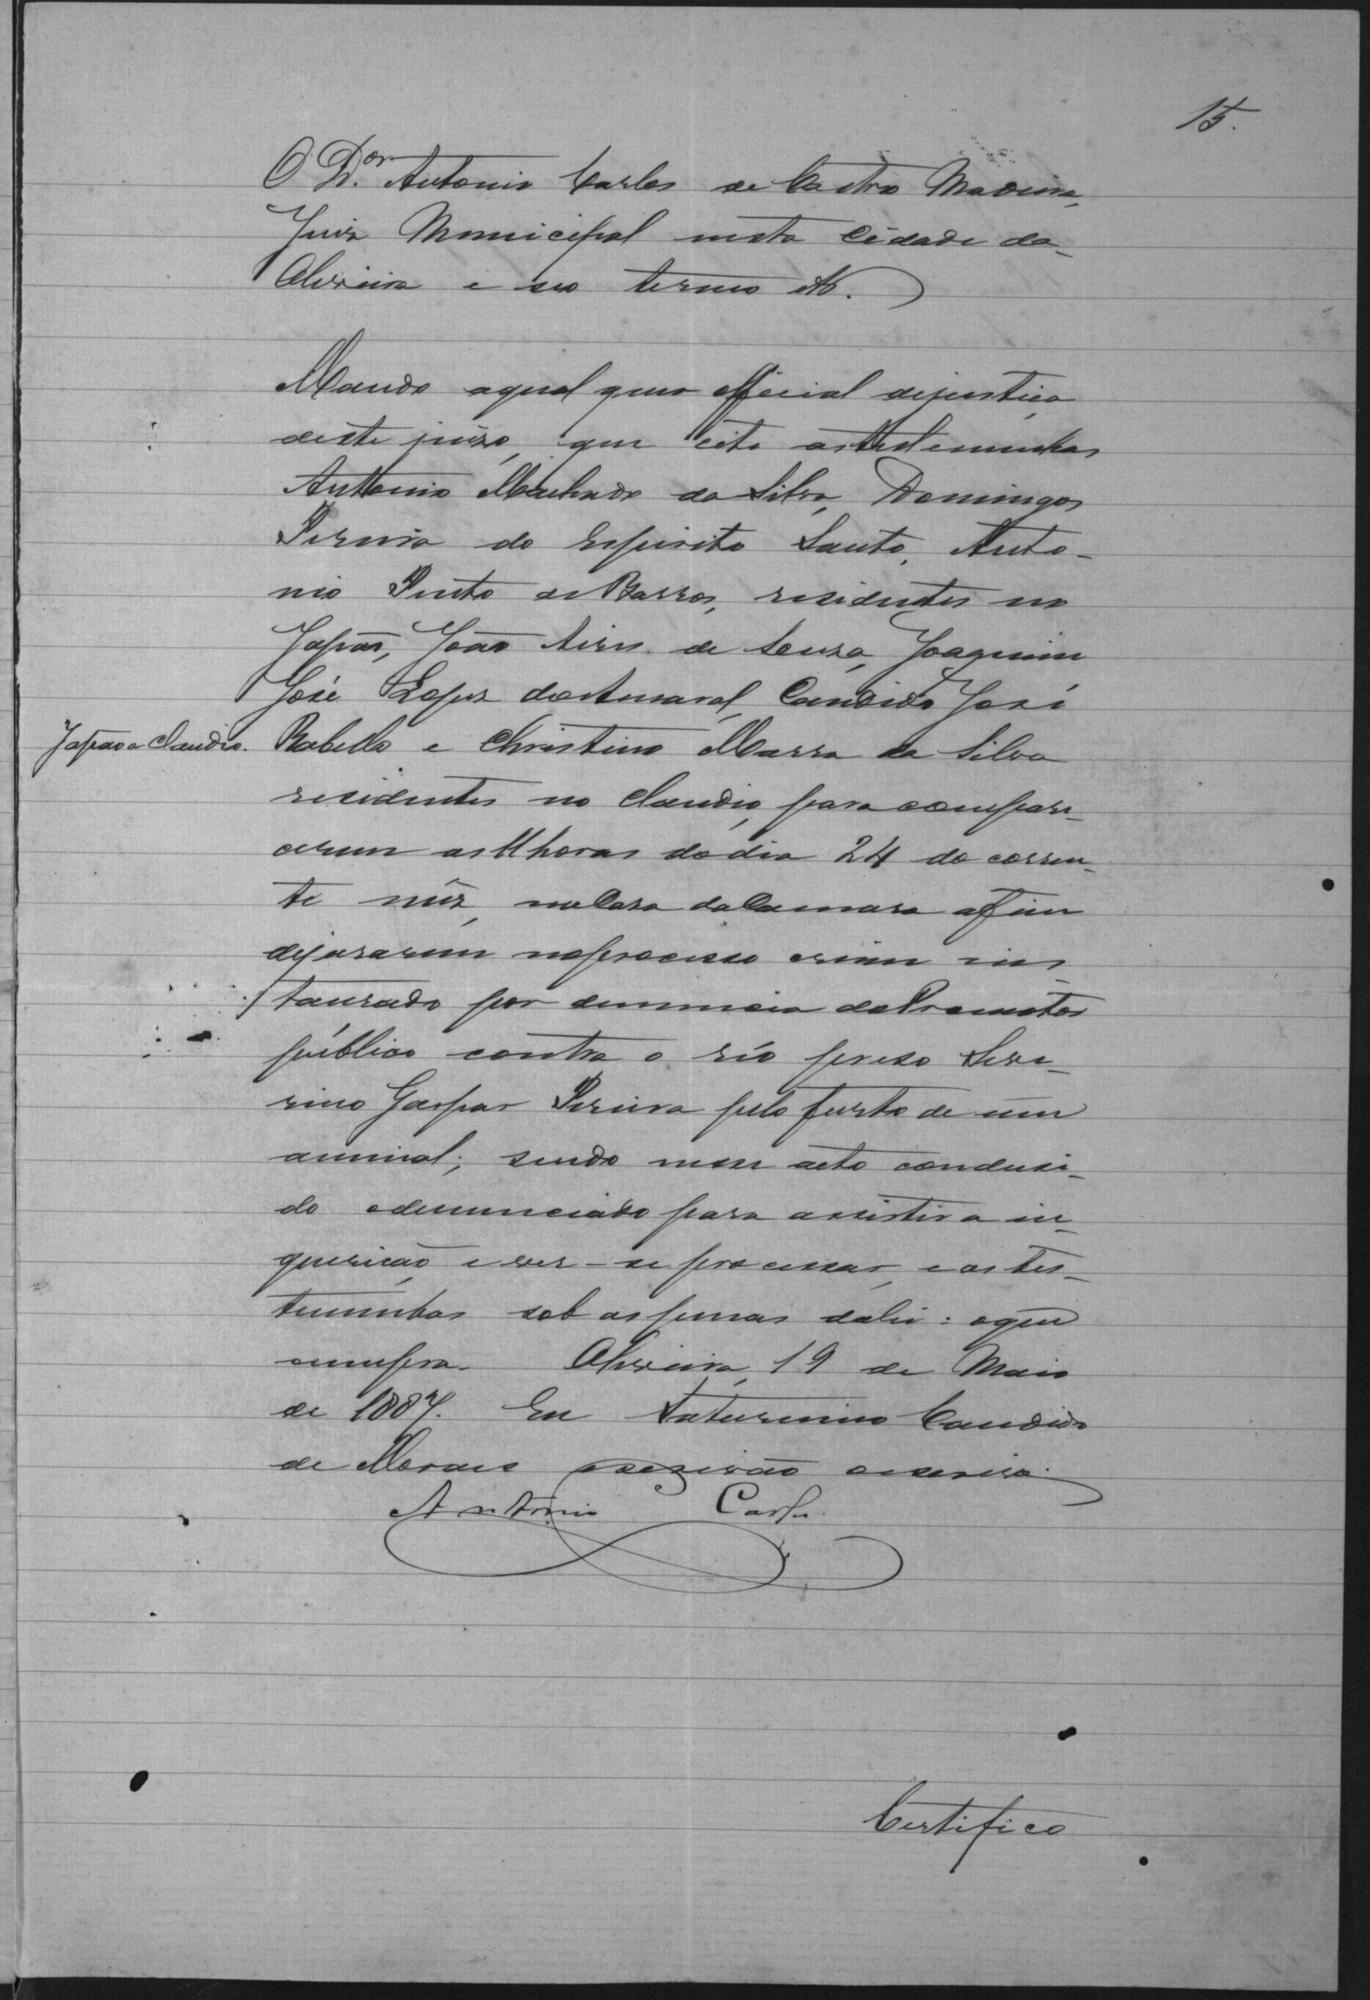 15.
O D.or Antonio Carlos de Castro Madeira,
Juiz Municipal nesta Cidade da
Oliveira e seo termo etc.
Mando aqual quer official dejustiça
deste juizo, que cite astestemunhas
Antonio Machado da Silva, Domingos
Pereira do Espirito Santo, Anto-
nio Pinto de Barros, residentes no
Japão, João de Souza, Joaquim
José Lopes doAmaral, Candido José
Japão e Claudio. Rabello e Christino Marra da Silva
residentes no Claudio, para compare-
cerem as 11 horas dodia 24 do corren-
te mêz, naCasa daCamara afim
dejurarem noprocesso crime ins-
taurado por denuncia doPromotor
publico contra o réo preso Seve-
rino Gaspar Pereira pelo furto de um
animal; sendo nesse acto condusi-
do odenunciado para assistir a in-
querição e ver-se processar, e as tes-
temunhas sob as penas dalei: oque
cumpra. Oliveira, 19 de Maio
de 1887. Eu Saturnino Candido
de Moraes escrivão oescrevi.
Antonio Carlos
Certifico